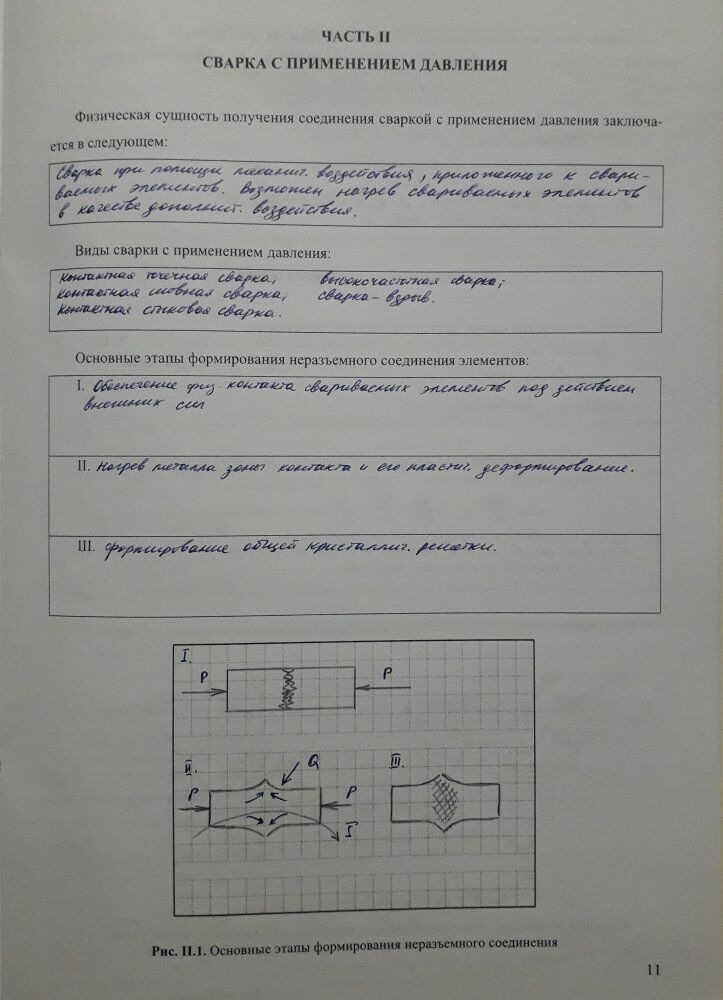 ЧАСТЬ II
СВАРКА С ПРИМЕНЕНИЕМ ДАВЛЕНИЯ
Физическая сущность получения соединения сваркой с применением давления заключа-
ется в следующем:
Сварка при помощи механич. воздействия, приложенного к свари-
ваемых элементов. Возможен нагрев свариваемых элементов
в качестве дополнит. воздействия.
Виды сварки с применением давления:
Контактная точечная сварка; высокочастотная сварка;
Контактная шовная сварка; сварка-взрыв.
Контактная стыковая сварка.
Основные этапы формирования неразъемного соединения элементов:
I. Обеспечение физ. контакта свариваемых элементов под действием
внешних сил
II. Нагрев металла зоны контакта и его пластич. деформирование.
III. Формирование общей кристаллич. решетки.
I.
P P
II. Q III.
P P
I
Рис. II.1. Основные этапы формирования неразъемного соединения
11